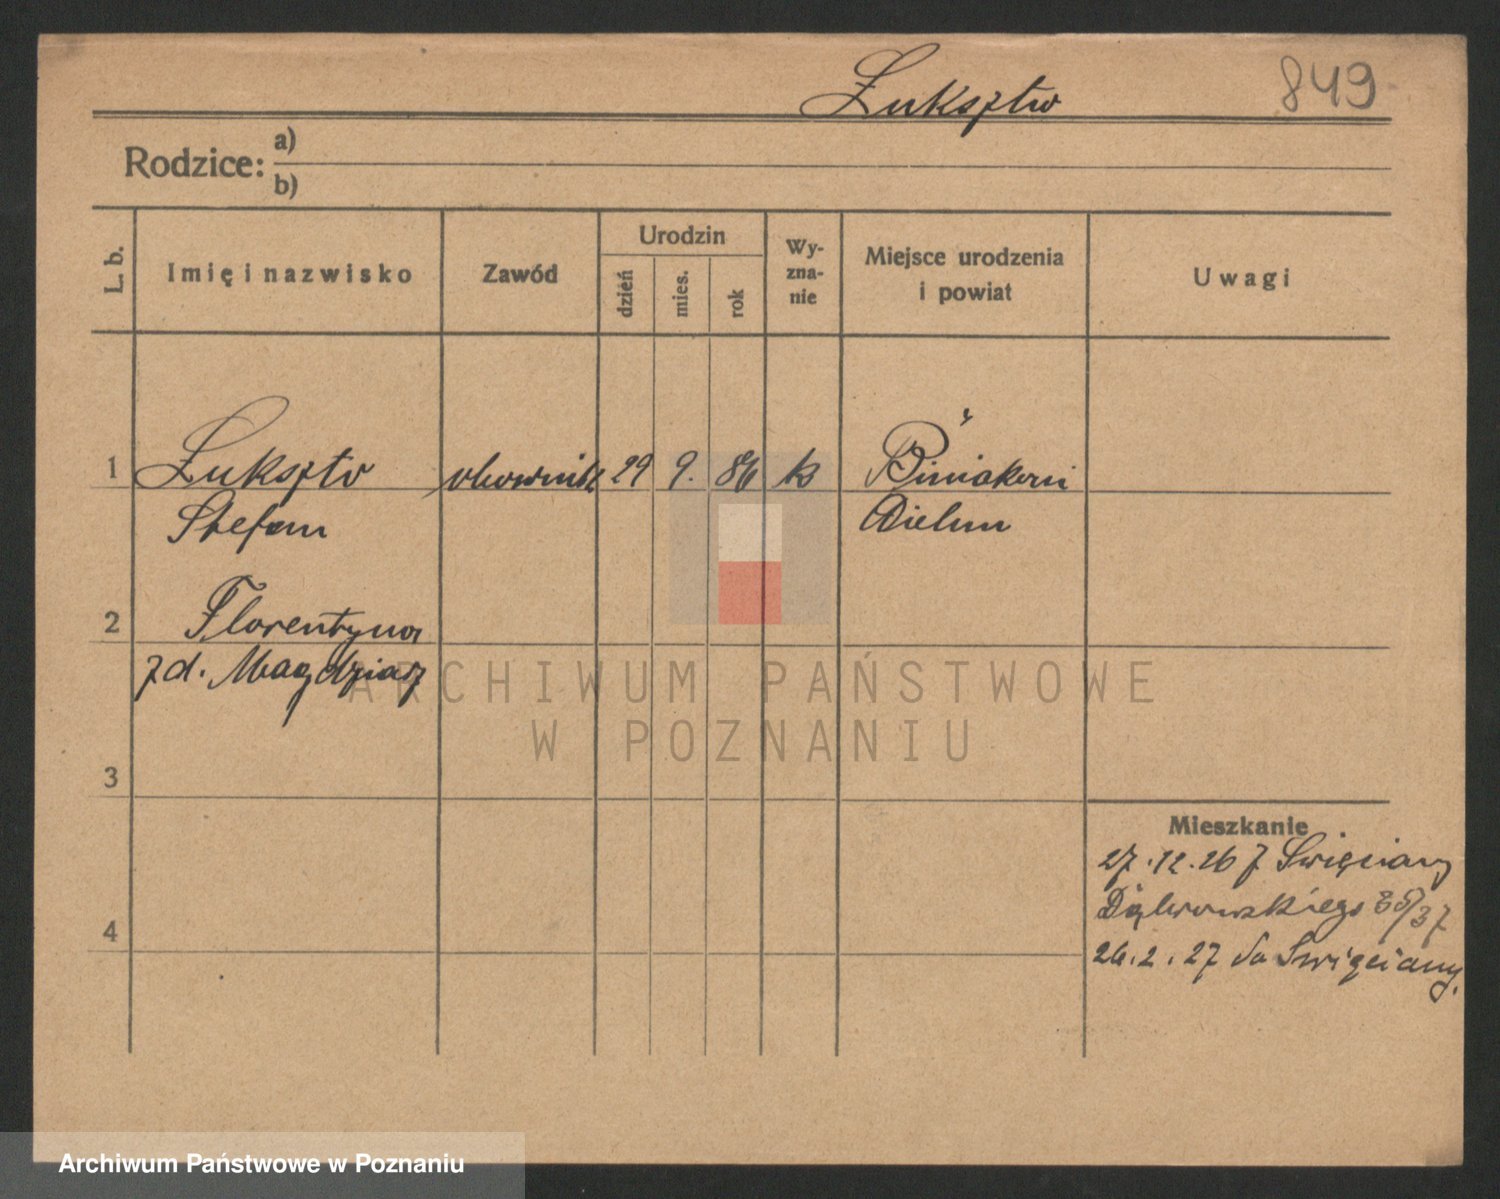 Łuksztw
849
Rodzice: a)
b)
L. b.
Imię i nazwisko
Zawód
Urodzin
dzień
mies.
rok
Wy-
zna-
nie
Miejsce urodzenia
i powiat
Uwagi
1
Łuksztw
29
9.
86
k
Stefan
2
Florentyna
z d. Magdziasz
3
4
Mieszkanie
27.12.26 z Święciany
Dąbrowskiego 35/37
26.2.27 do Święciany.
ARCHIWUM PAŃSTWOWE
W POZNANIU
Archiwum Państwowe w Poznaniu